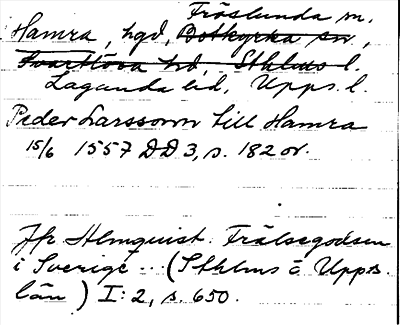 Fröslunda sn.
Hamra, hgd, Botkyrka sn,
Svartlösa hd, Sthlms l.
Lagunda hd, Upps. l.
Peder Larsson till Hamra
15/6 1557 DD 3, s. 182 v.
Jfr Almquist. Frälsegodsen
i Sverige ... (Sthlms o Upps.
län) I:2, s. 650.